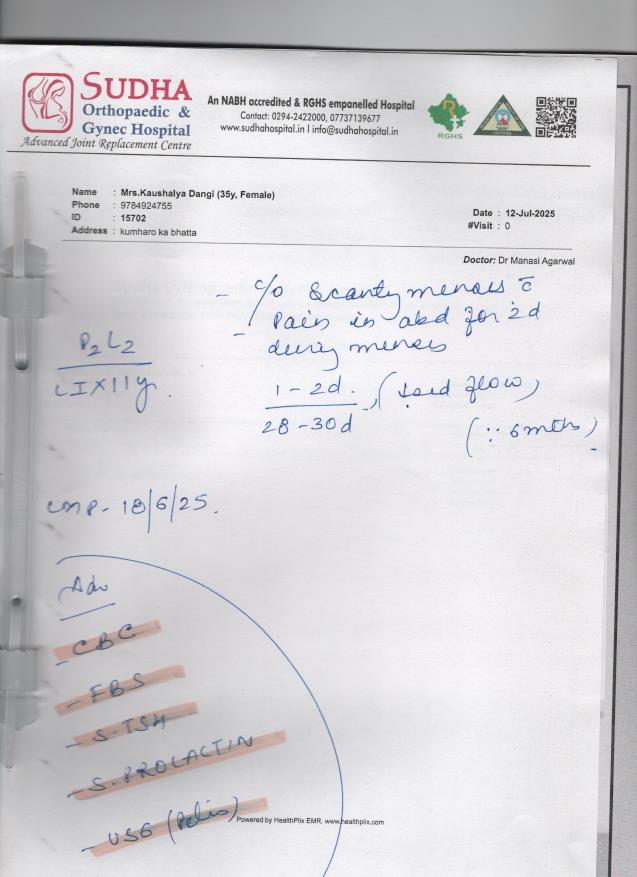 SUDHA
Orthopaedic &
Gynec Hospital
Advanced Joint Replacement Centre
An NABH accredited & RGHS empanelled Hospital
Contact: 0294-2422000, 07737139677
www.sudhahospital.in | info@sudhahospital.in
RGHS
Name : Mrs.Kaushalya Dangi (35y, Female)
Phone : 9784924755
ID : 15702
Address : kumharo ka bhatta
Date : 12-Jul-2025
#Visit : 0
Doctor: Dr Manasi Agarwal
- c/o Scanty menses c̄
- Pain in abd for 2d
during menses
P2L2
LI X 11y.
1 - 2d.
28 - 30d
flow)
(∵ 6 mths)
LMP - 18/6/25.
Adv
- CBC
- FBS
- S-TSH
- S. PROLACTIN
- USG (Pelvis)
Powered by HealthPlix EMR. www.healthplix.com